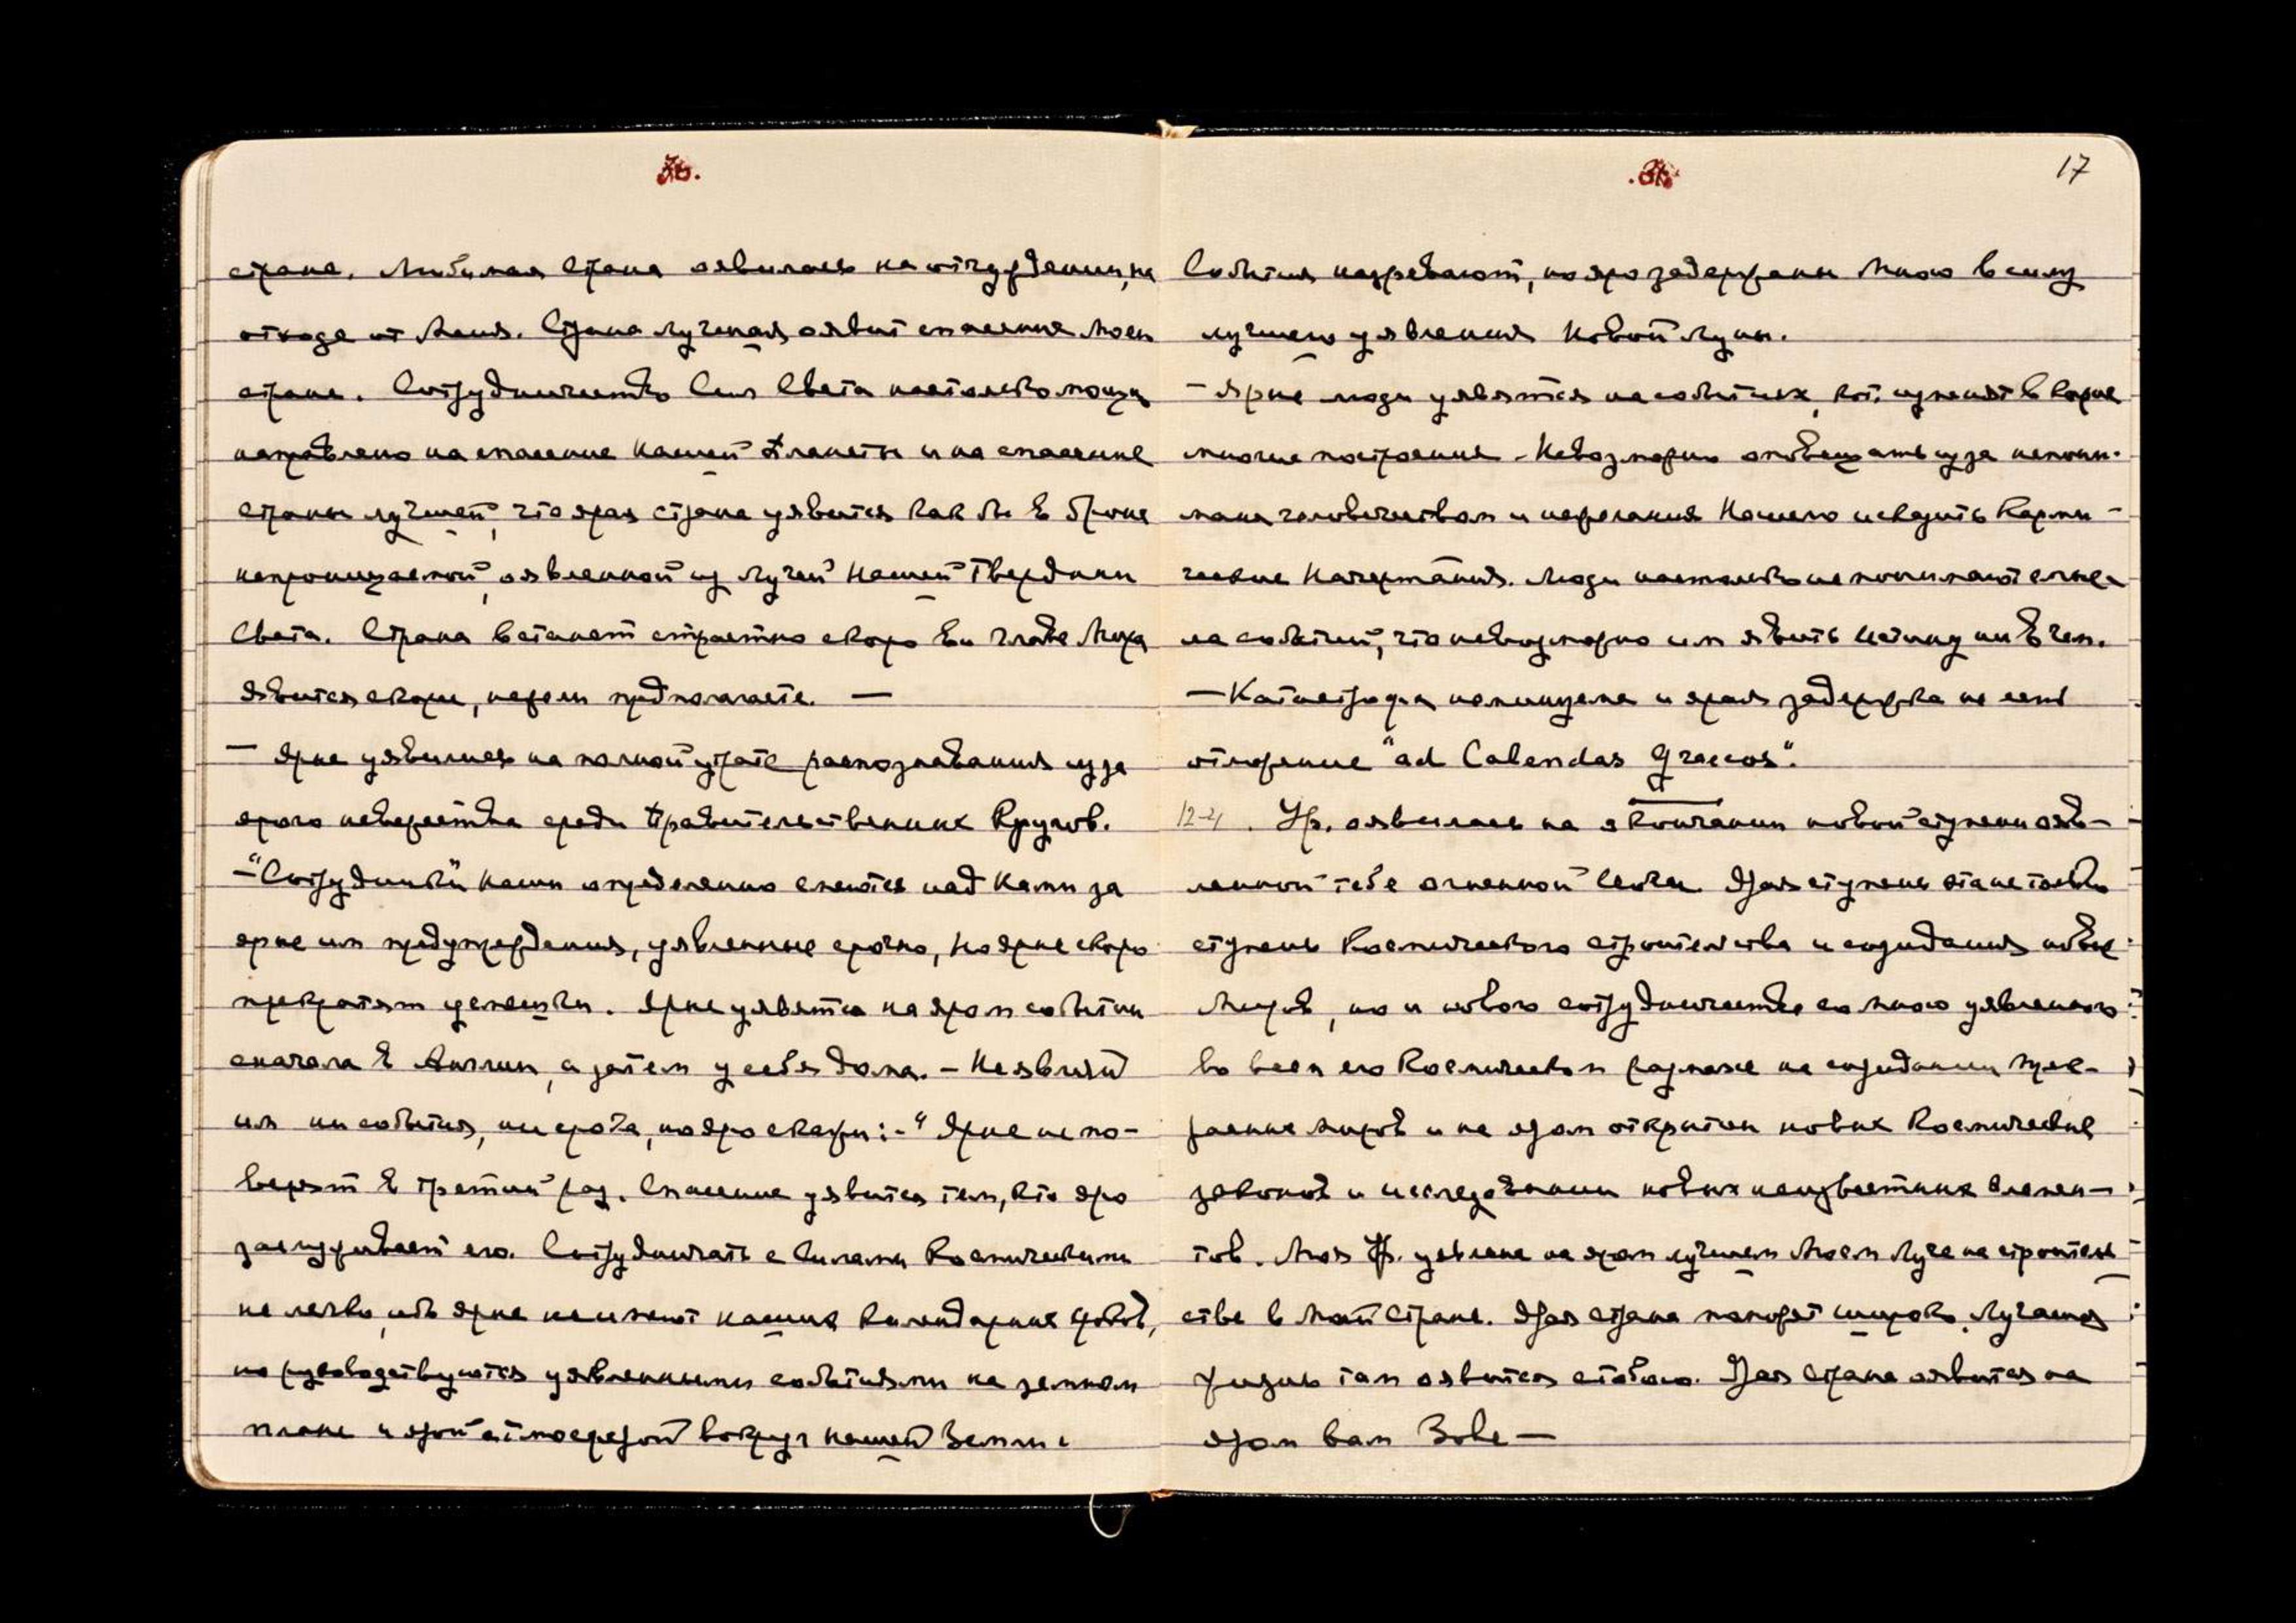 36.
стране. Любимая Страна оявилась на отчуждении, на
отходе от Меня. Страна лучшая оявит спасение Моей
стране. Сотрудничество Сил Света настолько мощно
направлено на спасение нашей планеты и на спасение
страны лучшей, что ярая страна уявится как бы в броне
непроницаемой, оявленной из Лучей Нашей Твердыни
Света. Страна встанет страстно скоро и во главе Мира
явится скорее, нежели предполагаете. —
— Ярые уявились на полной утрате распознавания из за
ярого невежества среди Правительственных Кругов.
— "Сотрудники" наши определенно смеются над Нами за
ярые им предупреждения, уявленные срочно, но ярые скоро
прекратят усмешки. Ярые уявятся на яром событии
сначала в Англии, а затем у себя дома. — Не являй
им ни события, ни срока, но яро скажи: - " Ярые не по-
верят в третий раз. Спасение уявится тем, кто яро
заслуживает его. Сотрудничать с Силами Космическими
не легко, ибо ярые не имеют наших календарных сроков,
но руководствуются уявленными событиями на земном
плане и ярой атмосферой вокруг нашей Земли.
36. 17
События назревают, но яро задержаны Мною в силу
лучшего уявления Новой Луны.
— Ярые люди уявятся на событиях, кот. изменят в корне
многие построения. - Невозможно оповещать из за непони-
мания человечеством и нежелания Нашего исказить Карми-
ческие Начертания. Люди настолько не понимают смысл-
ла событий, что невозможно им явить Истину ни в чем.
— Катастрофа неминуема и ярая задержка не есть
отложение "ad Calendas Graecas".
12-4. Ур. оявилась на окончании новой ступени ояв-
ленной тебе огненной Свечи. Ярая ступень станет новой
ступень Космического строительства и созидания новых
Миров, но и нового сотрудничества со мною уявленного
во всем его Космическом размахе на созидании прек-
расных миров и на яром открытии новых Космических
законов и исследовании новых неизвестных элемен-
тов. Моя Ур. уявлена на яром лучшем Моем Луче на строитель
стве в Моей Стране. Ярая страна поможет широко. Лучшая
жизнь там оявится с тобою. Ярая Страна оявится на
яром вам Зове —